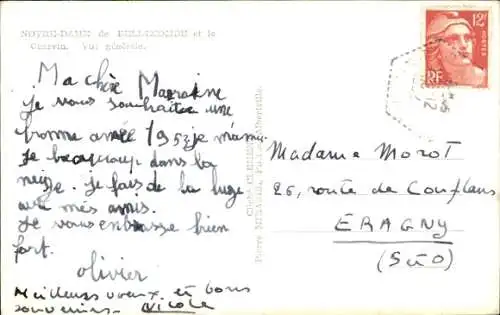 NOTRE-DAME de BELLECOMBE et le
Charvin. Vue générale.
Ma chère Marraine
je vous souhaite une
bonne année 1953 je m'amu
se beaucoup dans la
neige. je fais de la luge
avec mes amis.
Je vous embrasse bien
fort.
olivier
Meilleurs voeux et bons
souvenirs. Nicole
Pierre
12F
POSTES
RF
Madame Morot
26, route de Conflans
ERAGNY
(S&O)